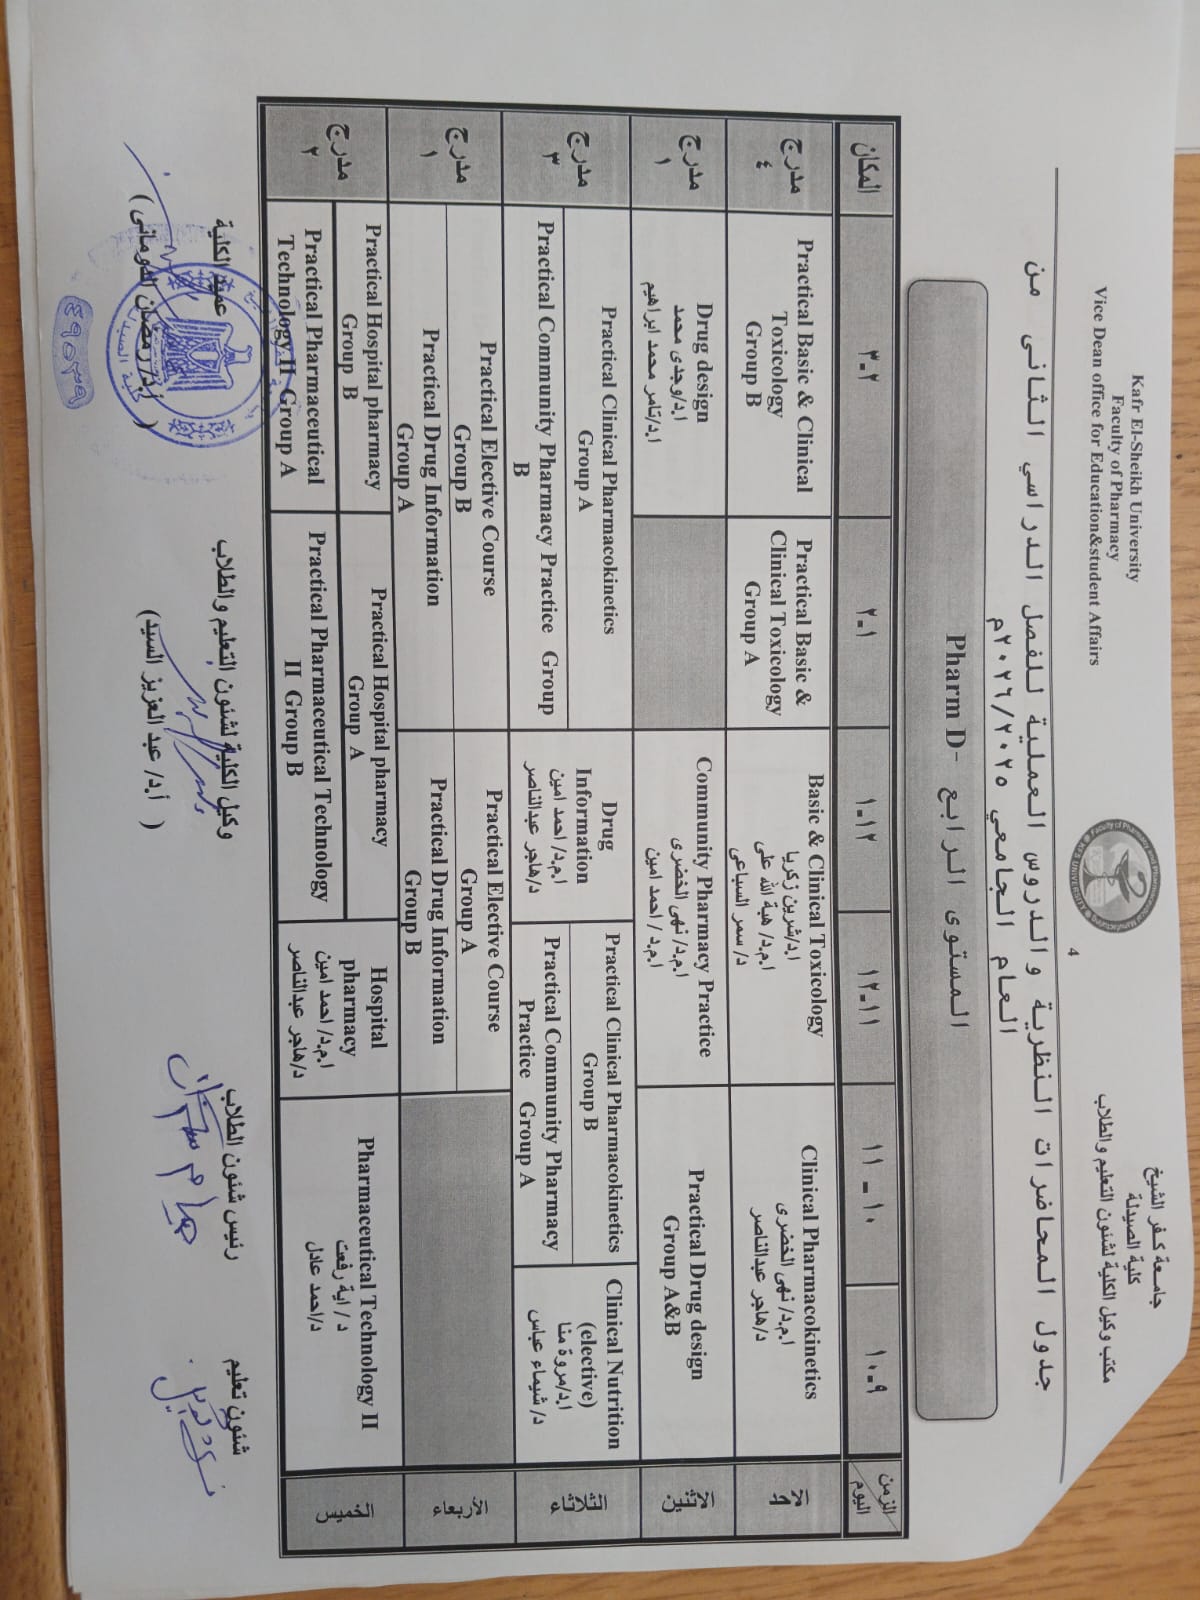 Kafr El-Sheikh University
Faculty of Pharmacy
Vice Dean office for Education&student Affairs
جامعة كفر الشيخ
كلية الصيدلة
مكتب وكيل الكلية لشئون التعليم والطلاب
4
جدول المحاضرات النظرية والدروس العملية للفصل الدراسي الثانى من
العام الجامعي ٢٠٢٥/ ٢٠٢٦م
المستوى الرابع -Pharm D
الزمن
اليوم
٩-١٠
١٠ - ١١
١١-١٢
١٢-١
١-٢
٢-٣
المكان
الاحد
Clinical Pharmacokinetics
ا.م.د/ نهى الخضرى
د/هاجر عبدالناصر
Basic & Clinical Toxicology
ا.د/شرين زكريا
ا.م.د/ هبة الله على
د/ سمر السباعى
Practical Basic &
Clinical Toxicology
Group A
Practical Basic & Clinical
Toxicology
Group B
مدرج
٤
الاثنين
Practical Drug design
Group A&B
Community Pharmacy Practice
ا.م.د/ نهى الخضرى
ا.م.د / احمد امين
Drug design
ا.د/وجدى محمد
ا.د/تامر محمد ابراهيم
مدرج
١
الثلاثاء
Clinical Nutrition
(elective)
ا.د/مروة منا
د/ شيماء عباس
Practical Clinical Pharmacokinetics
Group B
Practical Community Pharmacy
Practice Group A
Drug
Information
ا.م.د/ احمد امين
د/هاجر عبدالناصر
Practical Clinical Pharmacokinetics
Group A
Practical Community Pharmacy Practice Group
B
مدرج
٣
الأربعاء
Practical Elective Course
Group A
Practical Drug Information
Group B
Practical Elective Course
Group B
Practical Drug Information
Group A
مدرج
١
الخميس
Pharmaceutical Technology II
د / اية رفعت
د/احمد عادل
Hospital
pharmacy
ا.م.د/ احمد امين
د/هاجر عبدالناصر
Practical Hospital pharmacy
Group A
Practical Pharmaceutical Technology
II Group B
Practical Hospital pharmacy
Group B
Practical Pharmaceutical
Technology II Group A
مدرج
٢
شئون تعليم
رئيس شئون الطلاب
وكيل الكلية لشئون التعليم والطلاب
( أ.د/ عبد العزيز السيد)
عميد الكلية
( أ.د/ رمضان الدومانى)